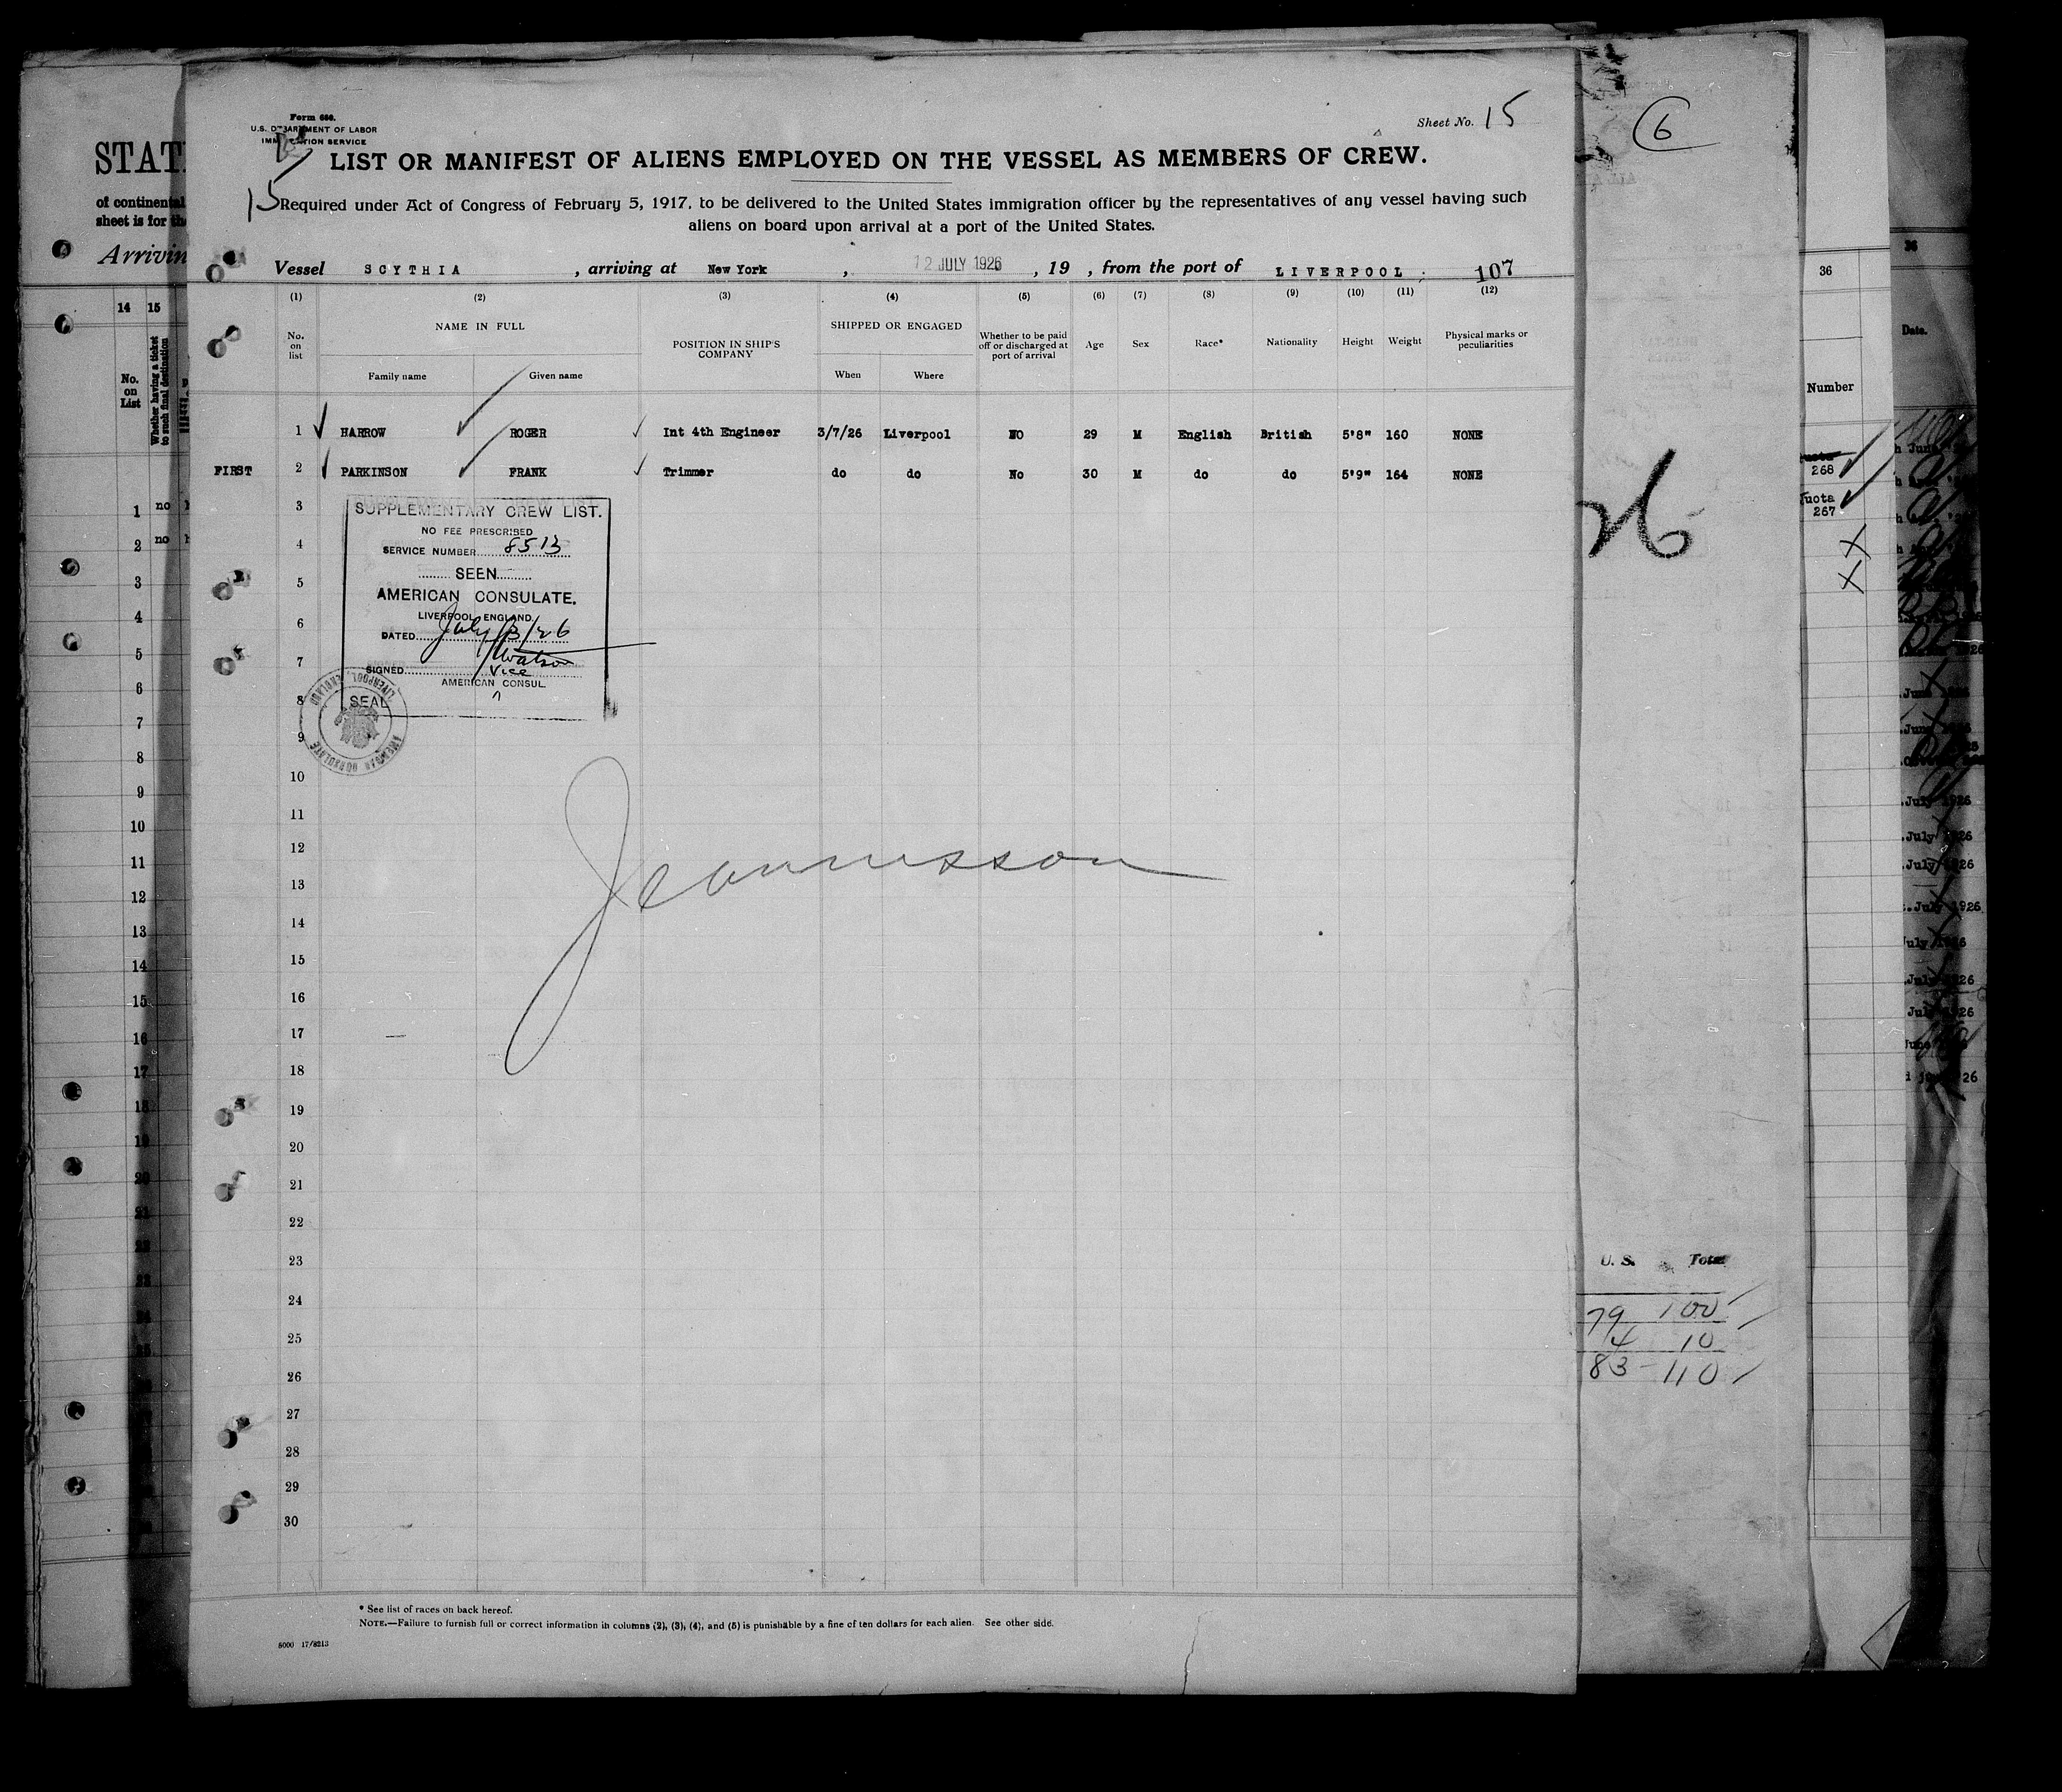 Form 680.
U.S. DEPARTMENT OF LABOR
IMMIGRATION SERVICE
Sheet No. 15
LIST OR MANIFEST OF ALIENS EMPLOYED ON THE VESSEL AS MEMBERS OF CREW.
15
Required under Act of Congress of February 5, 1917, to be delivered to the United States immigration officer by the representatives of any vessel having such
aliens on board upon arrival at a port of the United States.
Vessel SCYTHIA , arriving at New York , 12 JULY 1926 , 19 , from the port of LIVERPOOL 107
(1) (2) (3) (4) (5) (6) (7) (8) (9) (10) (11) (12)
No. on list NAME IN FULL Family name Given name POSITION IN SHIP'S COMPANY SHIPPED OR ENGAGED When Where Whether to be paid off or discharged at port of arrival Age Sex Race* Nationality Height Weight Physical marks or peculiarities
1 HARROW ROGER Int 4th Engineer 3/7/26 Liverpool NO 29 M English British 5'8" 160 NONE
FIRST 2 PARKINSON FRANK Trimmer do do No 30 M do do 5'9" 164 NONE
3
SUPPLEMENTARY CREW LIST.
NO FEE PRESCRIBED
4
SERVICE NUMBER 8513
SEEN
5
AMERICAN CONSULATE.
LIVERPOOL, ENGLAND.
6
DATED July /3/26
7
SIGNED Watson
Vice
AMERICAN CONSUL.
8
SEAL
AMERICAN CONSULATE
LIVERPOOL, ENGLAND
9
10
11
12
13
14
15
16
17
18
19
20
21
22
23
24
25
26
27
28
29
30
* See list of races on back hereof.
NOTE.—Failure to furnish full or correct information in columns (2), (3), (4), and (5) is punishable by a fine of ten dollars for each alien. See other side.
8000 17/8213
STAT
of continental
sheet is for the
Arrivin
14 15
No. on List
Whether having a ticket to such final destination
1 no
2 no
3
4
5
6
7
8
9
10
11
12
13
14
15
16
17
18
19
20
21
22
23
6
26
U. S. Total
79 100
4 10
83 - 110
36
Number
268
uota
267
36
Date.
July 1926
July 1926
July 1926
July 1926
July 1926
July 1926
July 1926